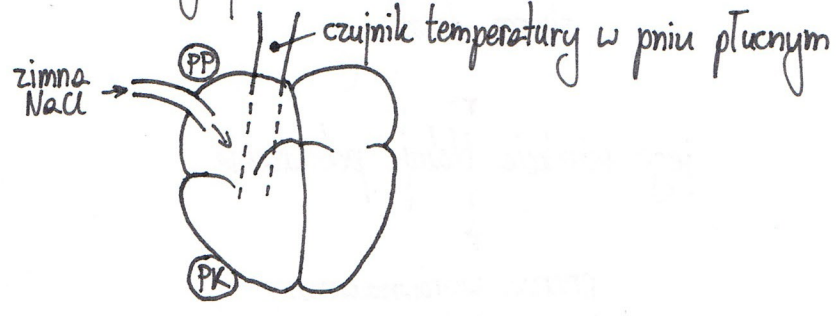 czujnik temperatury w pniu płucnym
PP
zimna
NaCl
PK